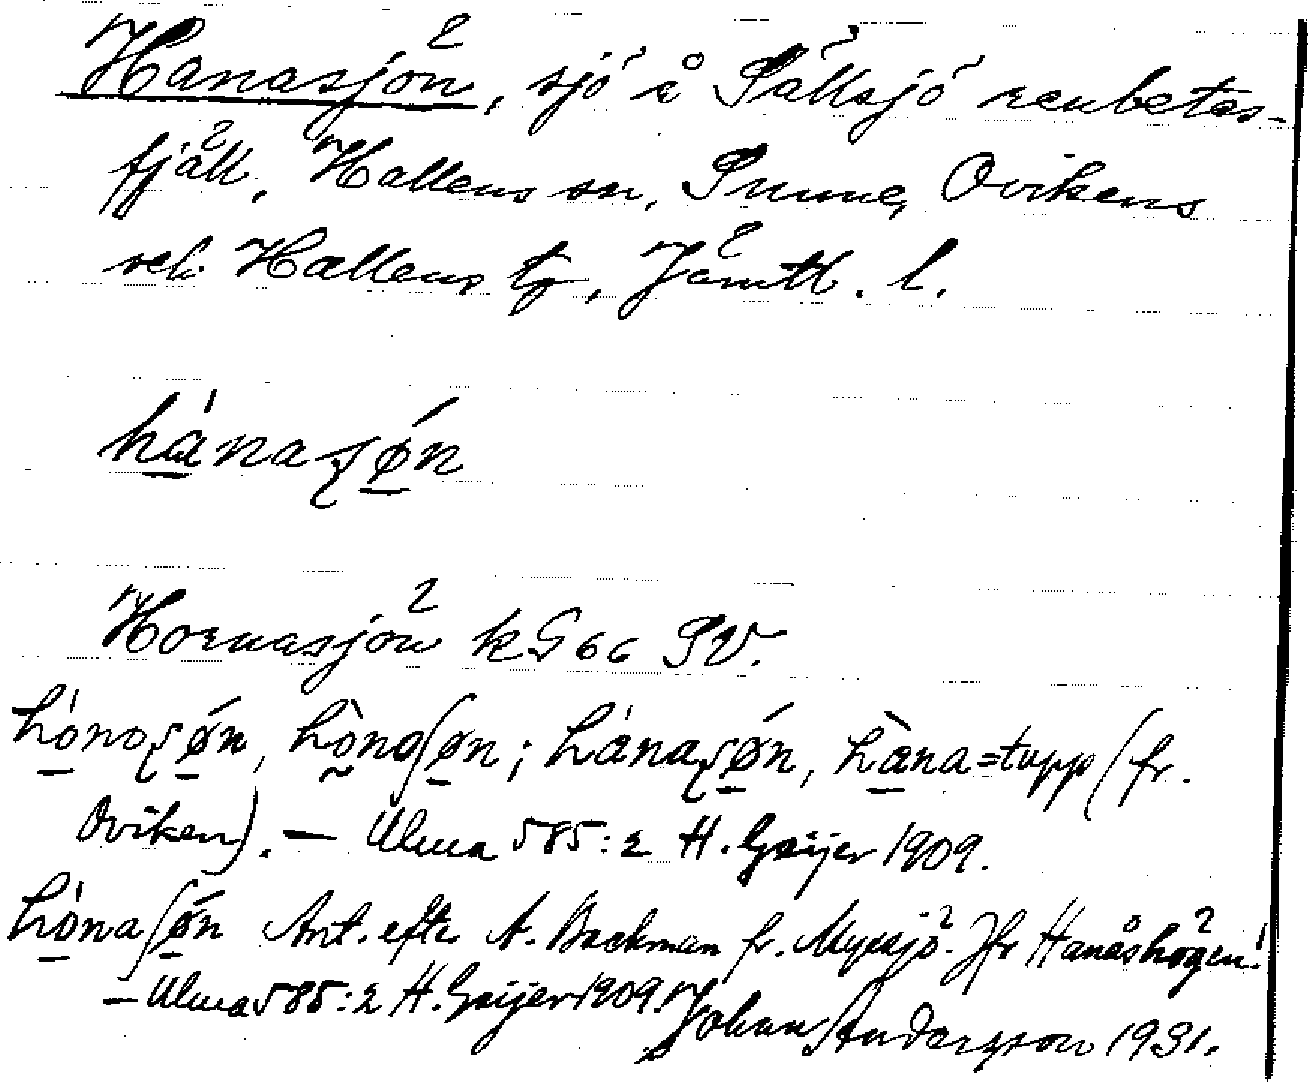 Hanasjön, sjö å Sällsjö renbetes-
fjäll, Hallens sn, Sunne, Ovikens
och Hallens tg, Jämtl. l.
hánaʂǿn
Hornasjön kG 66 SV.
hónoʂǿn, hònoʃøn; hánaʂǿn, hàna=tupp (fr.
Oviken). — Ulma 585:2 H. Geijer 1909.
hónaʃǿn Ant. efter A. Backman fr. Myssjö. Jfr Hanåshögen!
— Ulma 585:2 H. Geijer 1909. Johan Andersson 1931.